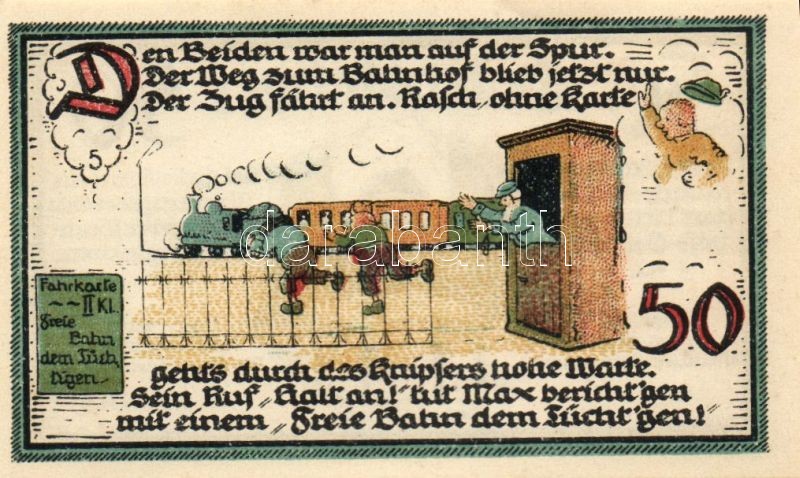 Den Beiden war man auf der Spur.
Der Weg zum Bahnhof blieb jetzt nur.
Der Zug fährt an. Rasch, ohne Karte
5
darabanth
Fahrkarte
~~II Kl.
Freie
Bahn
dem Tüch
tigen
50
geht's durch des Knipsers hohe Warte.
Sein Ruf „Halt an!" tut Max bericht'gen
mit einem „Freie Bahn dem Tücht'gen!